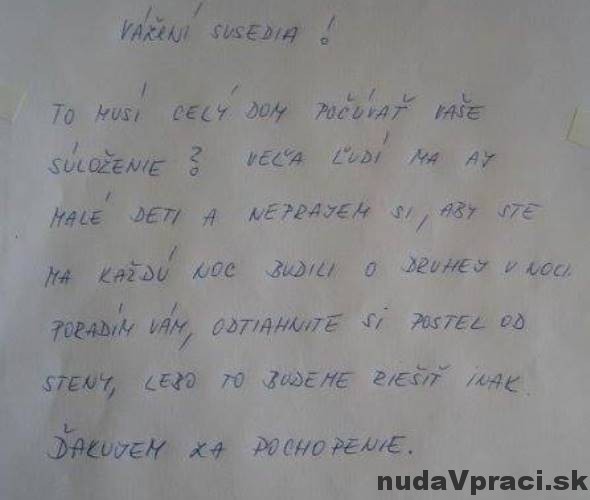 VÁŽENÍ SUSEDIA !
TO MUSÍ CELÝ DOM POČÚVAŤ VAŠE
SÚLOŽENIE ? VEĽA ĽUDÍ MA AJ
MALÉ DETI A NEPRAJEM SI, ABY STE
MA KAŽDÚ NOC BUDILI O DRUHEJ V NOCI.
PORADÍM VÁM, ODTIAHNITE SI POSTEL OD
STENY, LEBO TO BUDEME RIEŠIŤ INAK.
ĎAKUJEM ZA POCHOPENIE.
nudaVpraci.sk